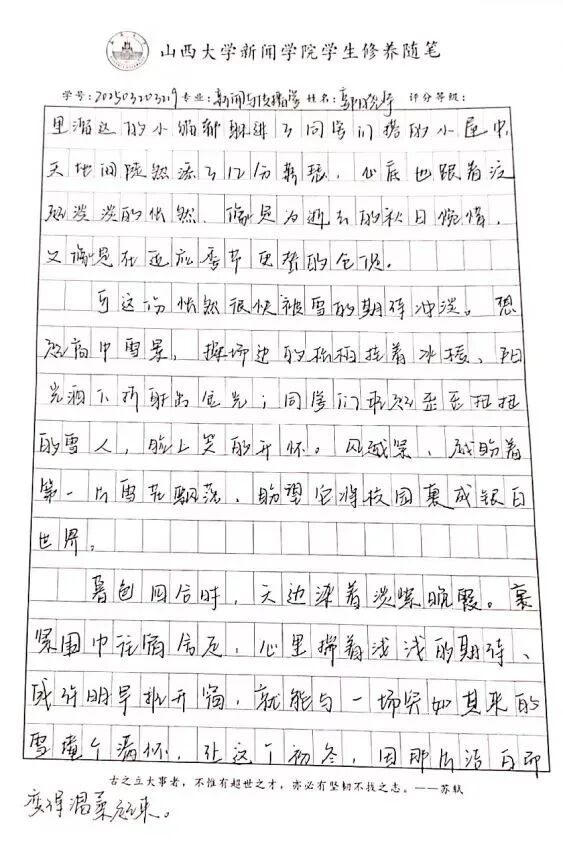 山西大学新闻学院学生修养随笔
学号:202503203219 专业:新闻与传播学 姓名: 评分等级:
里溜达的小猫都躲进了同学们搭的小屋中,
天地间陡然添了12分萧瑟,心底也跟着泛
起淡淡的怅然、像是为逝去的秋日惋惜,
又像是在适应季节更替的仓促。
可这份怅然很快被雪的期待冲淡。想
起高中雪景,操场边的松柏挂着冰棱、阳
光洒下折射出金光;同学们堆起歪歪扭扭
的雪人,脸上笑的开怀。风越紧,越盼着
第一片雪花飘落、盼望它将校园裹成银白
世界。
暮色四合时,天边染着淡紫晚霞。裹
紧围巾往宿舍走,心里揣着浅浅的期待、
或许明早推开窗,就能与一场突如其来的
雪撞个满怀,让这个初冬,因那片洁白而
古之立大事者,不惟有超世之才,亦必有坚韧不拔之志。——苏轼
变得温柔起来。